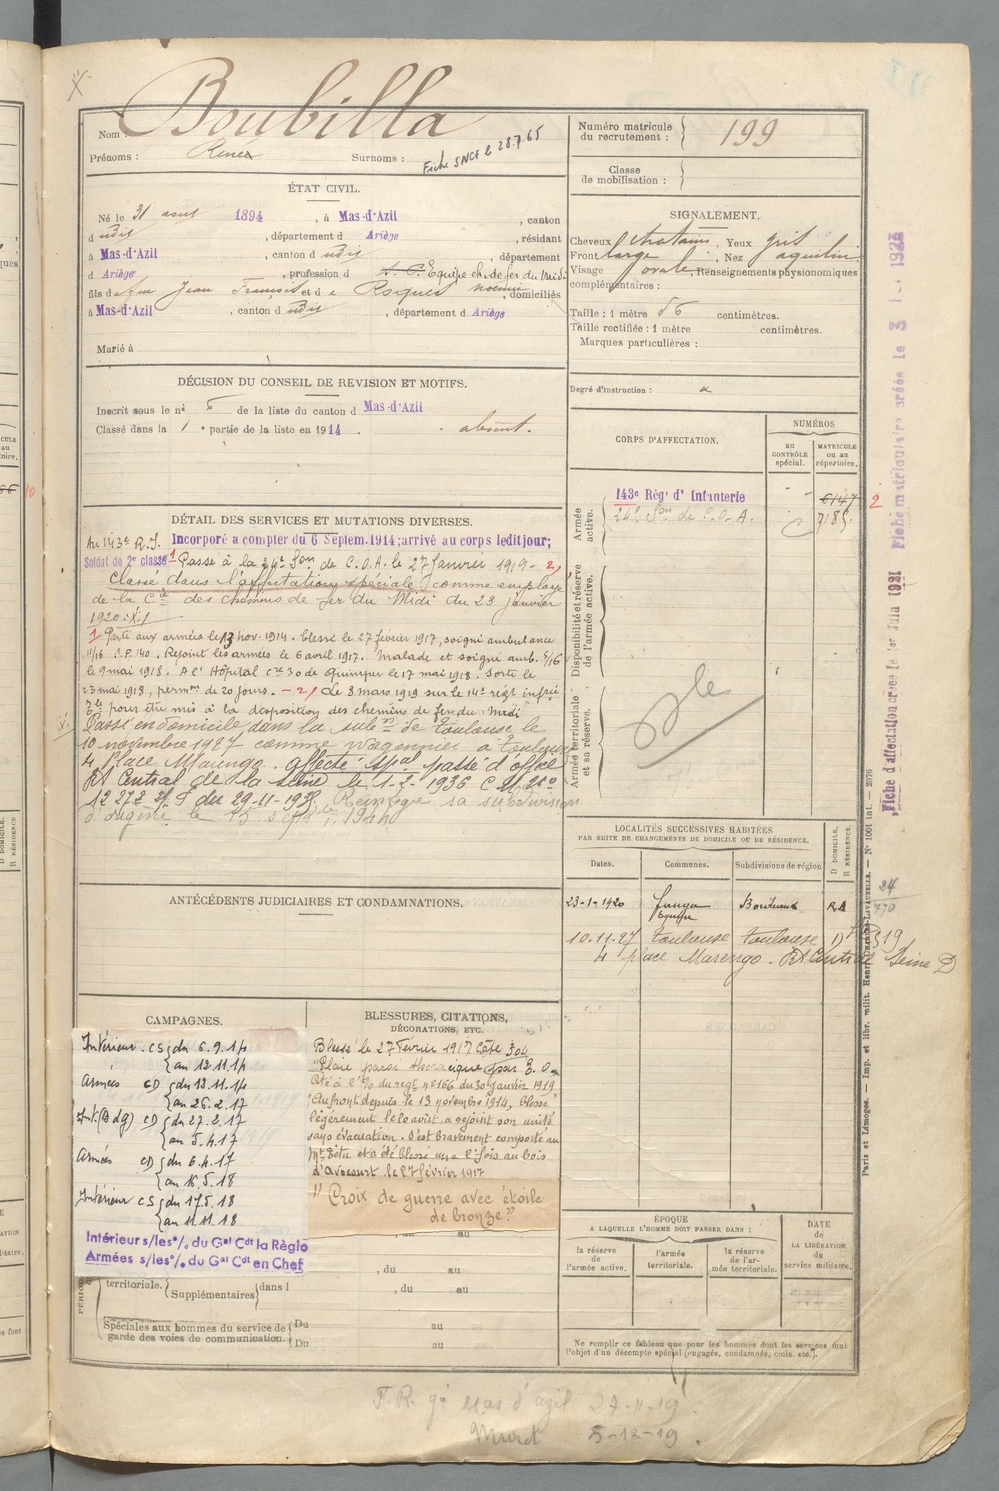 Nom Boubilla
Prénoms : René
Surnoms :
Fiche SNCF le 28.7.65
Numéro matricule du recrutement : 199
Classe de mobilisation :
ÉTAT CIVIL.
Né le 31 août 1894, à Mas-d'Azil, canton
d udit, département d Ariège, résidant
à Mas-d'Azil, canton d udit, département
d Ariège, profession d Equipe ch. de fer du Midi
fils de feu Jean François et de Roques Noémie, domiciliés
à Mas-d'Azil, canton d udit, département d Ariège
Marié à
SIGNALEMENT.
Cheveux chatains, Yeux gris
Front large, Nez aquilin
Visage ovale, Renseignements physionomiques
complémentaires :
Taille : 1 mètre 56 centimètres.
Taille rectifiée : 1 mètre centimètres.
Marques particulières :
Degré d'instruction :
DÉCISION DU CONSEIL DE REVISION ET MOTIFS.
Inscrit sous le n° 5 de la liste du canton d Mas-d'Azil
Classé dans la 1e partie de la liste en 1914
absent.
CORPS D'AFFECTATION.
NUMÉROS
au CONTRÔLE spécial.
MATRICULE ou au répertoire.
Armée active.
143e Régt d' Infanterie 6147 2
24e Son de C.O.A. 7185
Disponibilité et réserve de l'armée active.
Armée territoriale et sa réserve.
DÉTAIL DES SERVICES ET MUTATIONS DIVERSES.
Au 143e R.I. Incorporé a compter du 6 Septem. 1914; arrivé au corps ledit jour;
Soldat de 2e classe 1 Passé à la 24e Son de C.O.A. le 27 Janvier 1919 - 2)
Classé dans l'affectation spéciale comme employé
de la Cie des chemins de fer du Midi du 23 janvier
1920.
1 Parti aux armées le 13 nov. 1914. blessé le 27 février 1917, soigné ambulance
11/16 C.P. 140. Rejoint les armées le 6 avril 1917. Malade et soigné amb. 5/16
le 9 mai 1918. A l' Hôpital cre 30 de Quimper le 17 mai 1918. Sorti le
23 mai 1918, permon de 20 jours. - 2) Le 8 mars 1919 sur le 14e régt infrie
pour être mis à la disposition des chemins de fer du Midi
Passé en domicile dans la subon de Toulouse le
10 novembre 1927 comme wagonnier à Toulouse
4 Place Marengo. affecté spal passé d'office
Rt Central de la Seine le 1-2-1936 C.M. 
12272 du 29-11-1935. Réintègre sa subdivision
d'origine le 15 septbre 1944
ANTÉCÉDENTS JUDICIAIRES ET CONDAMNATIONS.
LOCALITÉS SUCCESSIVES HABITÉES
PAR SUITE DE CHANGEMENTS DE DOMICILE OU DE RÉSIDENCE.
Dates. Communes. Subdivisions de région
D DOMICILE. R RÉSIDENCE.
23-1-1920 Bordeaux
10.11.27 Toulouse Toulouse D
4 place Marengo. Rt Central Seine D
CAMPAGNES.
Intérieur. CS du 6.9.14
au 12.11.14
Armées CD du 13.11.14
au 26.2.17
Int. (B dg) CD du 27.2.17
au 5.4.17
Armées CD du 6.4.17
au 16.5.18
Intérieur CS du 17.5.18
au 11.11.18
Intérieur s/les o/. du Gal Cdt la Régio
Armées s/les o/. du Gal Cdt en Chef
BLESSURES, CITATIONS,
DÉCORATIONS, ETC.
Blessé le 27 Février 1917 Côte 304
"Plaie paroi thoracique" par E.O.
Cité à l'O/ du régt n° 166 du 30 janvier 1919
"Au front depuis le 13 novembre 1914, blessé
légèrement le 20 août. a rejoint son unité
sans évacuation. S'est bravement comporté au
Mt Têtu et a été blessé une 2e fois au bois
d'Avocourt le 27 février 1917
"Croix de guerre avec étoile
de bronze."
territoriale. Supplémentaires dans l
, du au
, du au
Spéciales aux hommes du service de garde des voies de communication.
Du au
Du au
ÉPOQUE
A LAQUELLE L'HOMME DOIT PASSER DANS :
la réserve de l'armée active.
l'armée territoriale.
la réserve de l'armée territoriale.
DATE de LA LIBÉRATION du service militaire.
Ne remplir ce tableau que pour les hommes dont les services font
l'objet d'un décompte spécial (engagés, condamnés, omis, etc.).
Mas d'azil 27-11-19
Muret 5-12-19
Fiche d'affectation créée le 1er Juin 1931
Fiche matriculaire créée le 3
Paris et Limoges. — Imp. et libr. milit. Henri Charles-Lavauzelle. — N° 1001 int. — 2976